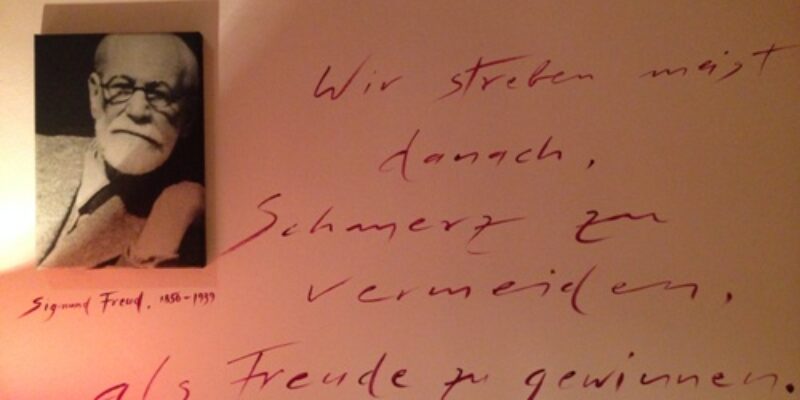 Wir streben meist
danach,
Schmerz zu
vermeiden,
als Freude zu gewinnen.
Sigmund Freud. 1856-1939